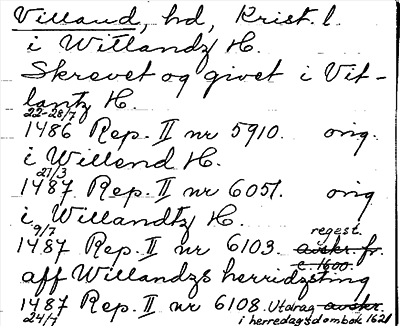 Villand, hd, Krist. l.
i Witlandz H.
Skrevet og givet i Vit-
lantz H.
22-28/7
1486 Rep. II nr 5910. orig.
i Willend H.
21/3
1487 Rep. II nr 6051. orig
i Willandtz H.
9/7 regest.
1487 Rep. II nr 6103. avskr. fr.
c. 1600.
aff Willandzs herridzting
1487 Rep. II nr 6108. Utdrag avskr.
24/7 i herredagsdombok 1621